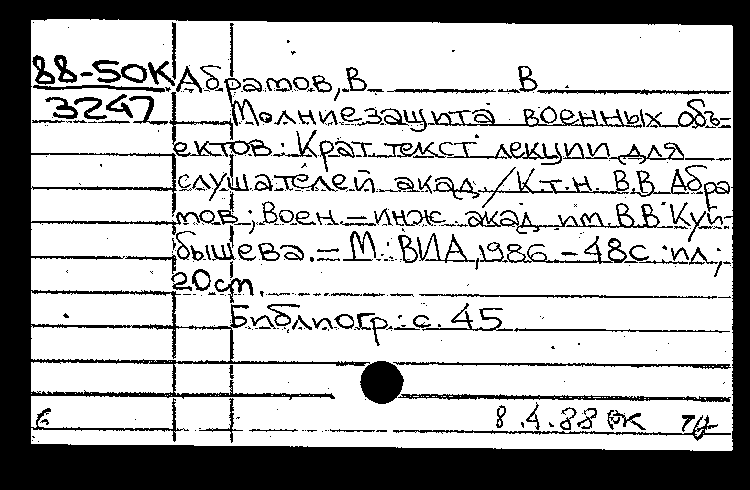 88-50К Абрамов, В В
3247 Молниезащита военных объ-
ектов: Крат. текст лекции для
слушателей акад. / К.т.н. В.В Абра
мов; Воен.-инж. акад им. В.В Куй-
бышева. - М.: ВИА, 1986 - 48с.: ил.;
20см.
Библиогр.: с. 45
8.4.88